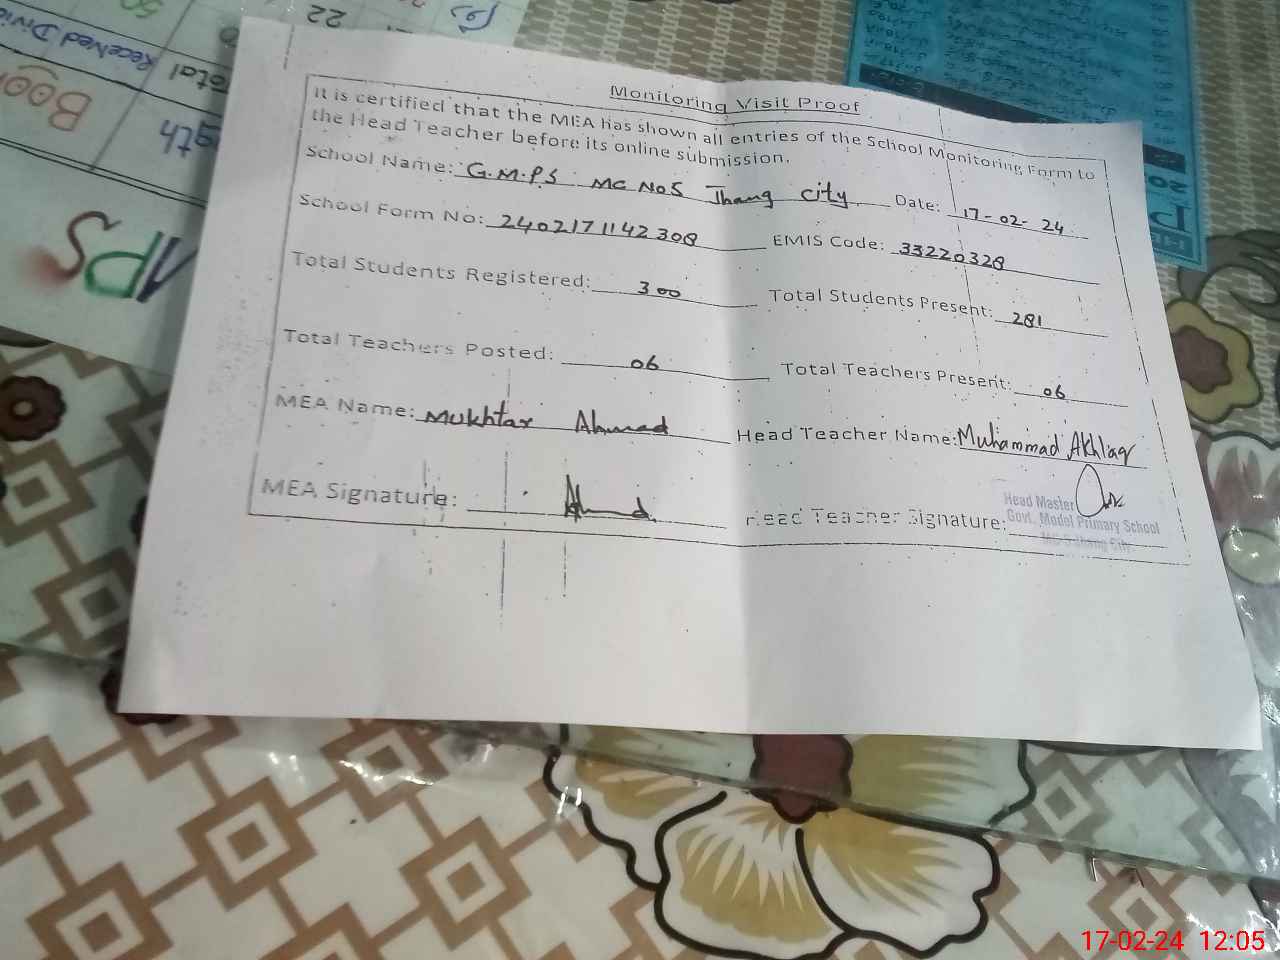 Monitoring Visit Proof
It is certified that the MEA has shown all entries of the School Monitoring Form to
the Head Teacher before its online submission.
School Name: G.M.P.S MC No5 Jhang city Date: 17-02-24
School Form No: 2402171142308 EMIS Code: 33220328
Total Students Registered: 300 Total Students Present: 281
Total Teachers Posted: 06 Total Teachers Present: 06
MEA Name: Mukhtar Ahmad Head Teacher Name: Muhammad Akhlaq
MEA Signature: Head Teacher Signature:
Head Master
Govt. Model Primary School
MC 5 Jhang City
Received
Total
22
50
MPS
17-02-24 12:05